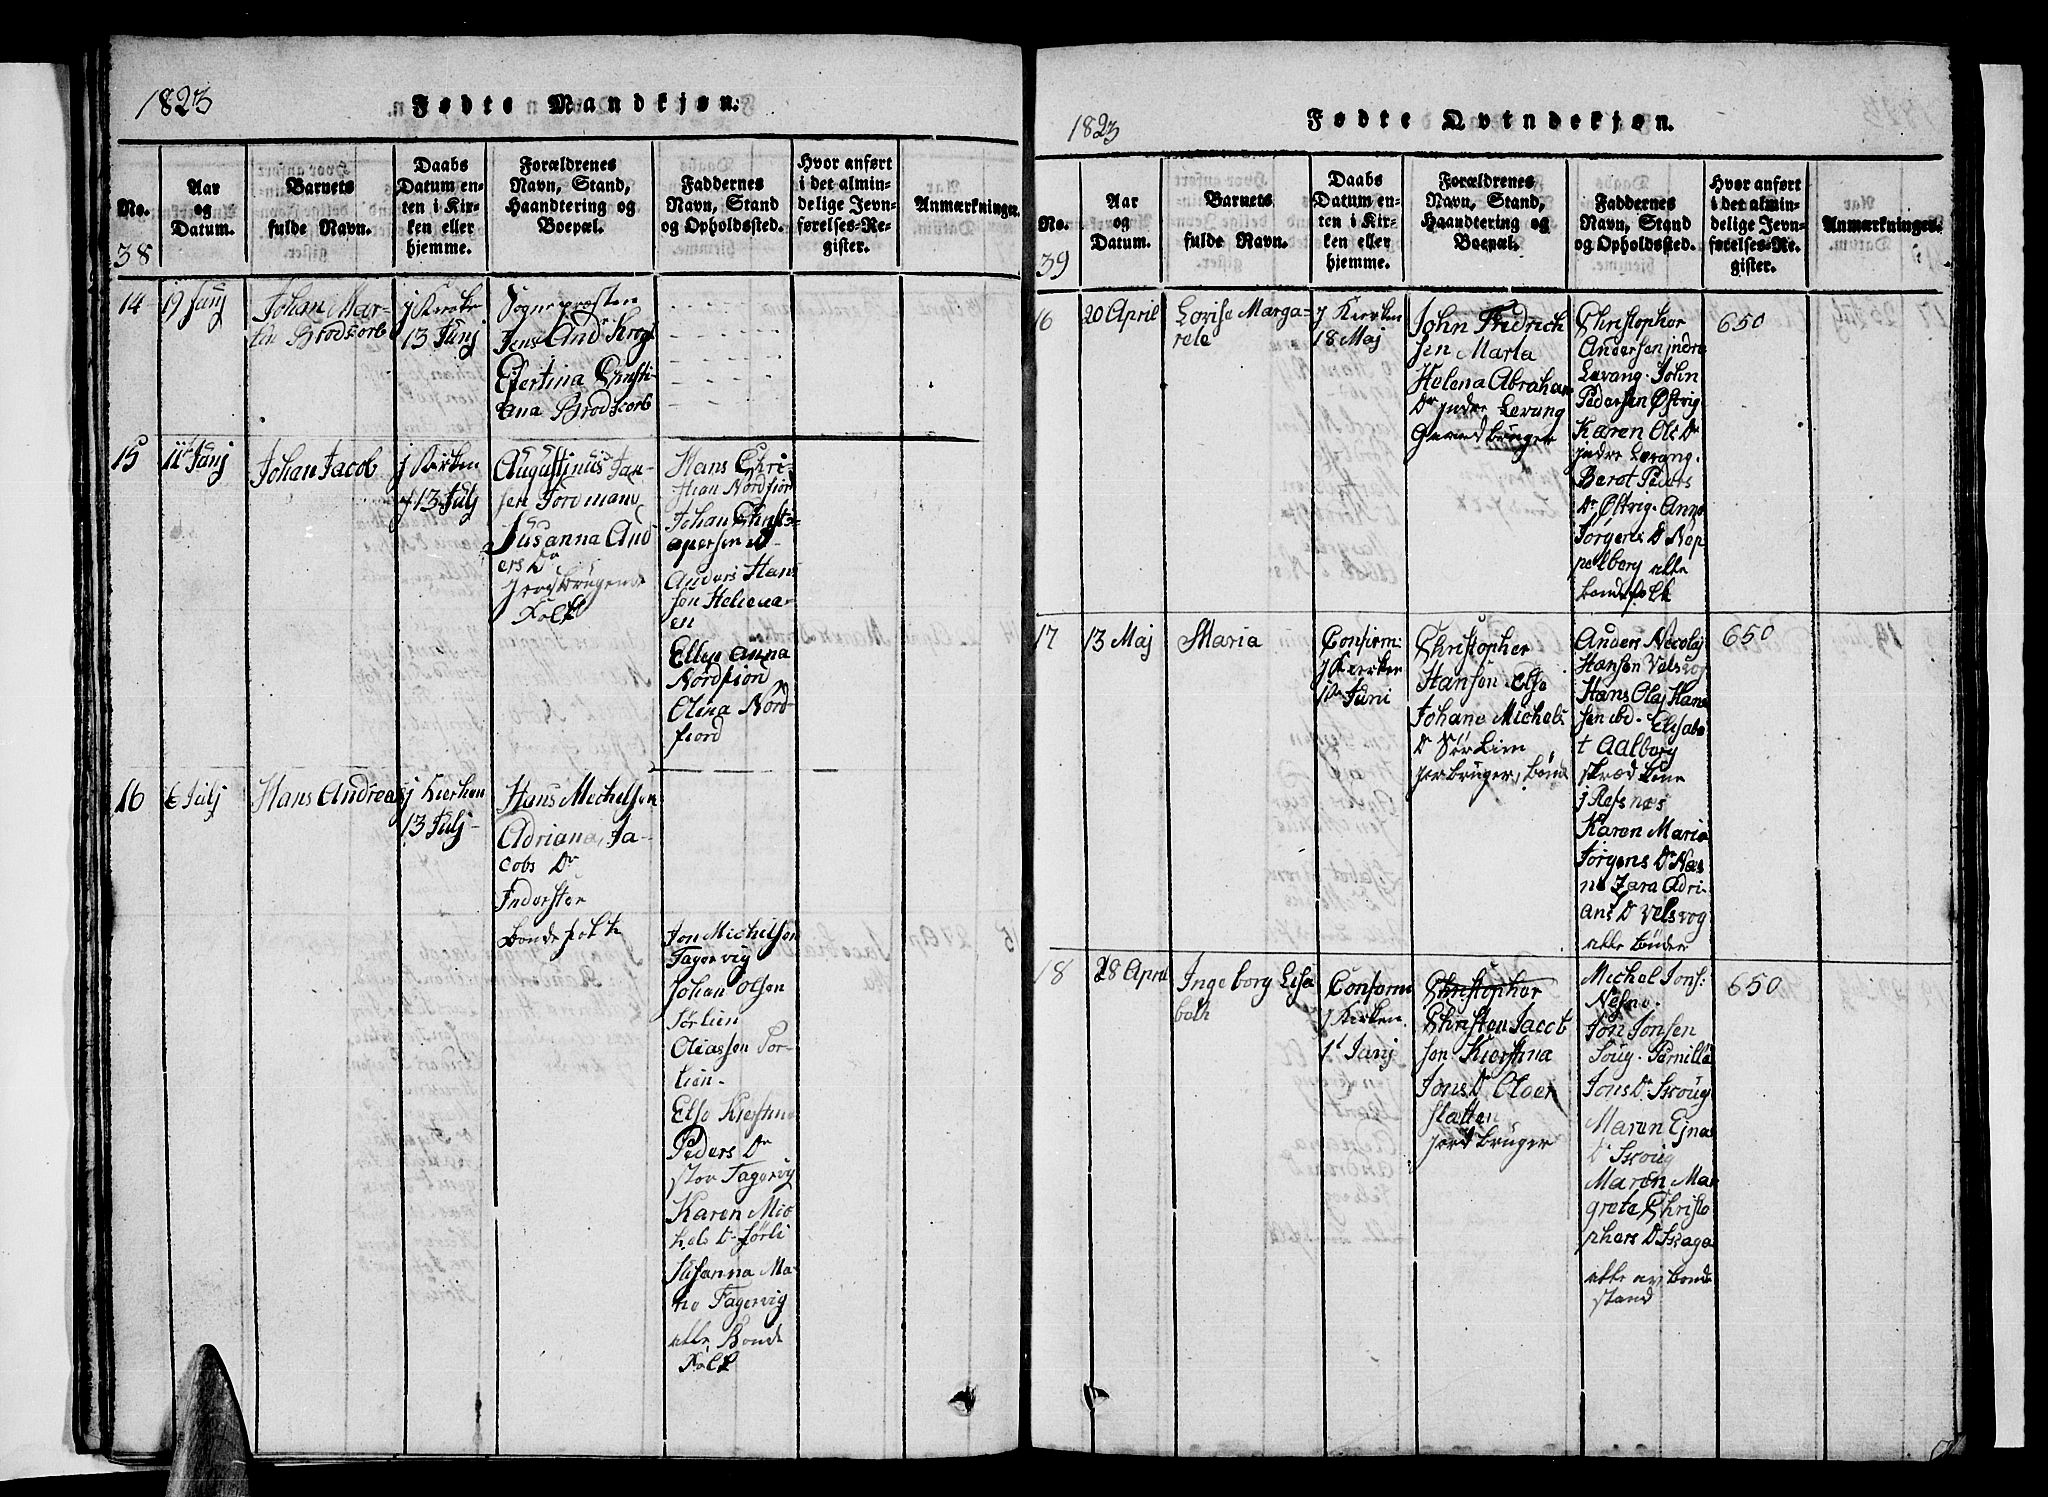 1823
Fødte Mandkjøn.
No.
38
Aar
og
Datum.
Barnets
fulde Navn.
Daabs
Datum en-
ten i Kir-
ken eller
hjemme.
Forældrenes
Navn, Stand,
Haandtering og
Boepæl.
Faddernes
Navn, Stand
og Opholdssted.
Hvor anført
i det almin-
delige Jevn-
førelses-Re-
gister.
Anmærkninger.
14
19 Junj
Johan Mar-
tin Brodskorb
j Kirke
13 Junj
Sognepræsten
Jens And Krog
Efertina Christi-
ana Brodskorb
15
11t Junj
Johan Jacob
j Kirken
13 Julj
Augustinus Jan-
sen Fordmand
Susanna And
ers Dr
jordbrugende
Folk
Hans Chri-
stian Nordfiord
Johan Christ-
Anders Hans
sen
Ellen Anna
Nordfiord
Olina Nord-
fiord
16
6 Julj
Hans Andreas
j Kierken
13 Julj
Hans Michelsen
Adriana Ja-
cobs Dr
Indersten
Bondefolk
Jon Michelsen
Fagervig
Johan Olsen
Sørlien
Oliassen Sør-
lien
Else Kierstine
Peders Dr
stor Fagervig
Karen Mic
hels Dr Sørli
Susanna Ma-
Fagervig
alle Bonde
Folk
1823
Fødte Qvindekjøn.
No.
39
Aar
og
Datum.
Barnets
fulde Navn.
Daabs
Datum en-
ten i Kir-
ken eller
hjemme.
Forældrenes
Navn, Stand,
Haandtering og
Boepæl.
Faddernes
Navn, Stand
og Opholdssted.
Hvor anført
i det almin-
delige Jevn-
førelses-Re-
gister.
Anmærkninger.
16
20 April
Lovise Marga-
rete
j Kirken
18 Maj
John Fredrich
sen Maria
Helena Abraham
Dr jndre Levang
Gaardbruger
Christopher
Andersen jndre
Levang. John
Pedersen Østvig
Karen Ols Dr
jndre Levang.
Berot Peders
Dr Østvig. Anne
Jørgens Dr Nep
pelborg alle
bondefolk
650
17
13 Maj
Maria
Confirm:
j Kirken
1ste Juni
Christopher
Hansen Else
Johana Michels
Dr Sørliem
jorbruger, bønd
Anders Nicolaj
Hansen Velsvog
Hans Olaj Han
sen ibd. Elisabe
t Aalborg
j Refsnes
Karen Maria
Jørgens Dr Næs
ne Zara Adri-
ans Dr Velsvog
alle bønder
650
18
28 April
Ingeborg Elisa
beth
Conform
j Kirken
1t Junj
Christopher
Christen Jacob
sen Kierstina
Jons Dr Olver
sletten
jordbruger
Michel Jons:
Nesne.
Jon Jonsen
Soug. Pernille
Jons Dr Skoug
Maren Ejnas
Dr Skoug
Maren Mar
greta Christo
phers Dr Skaga
alle av bonde
stand
650